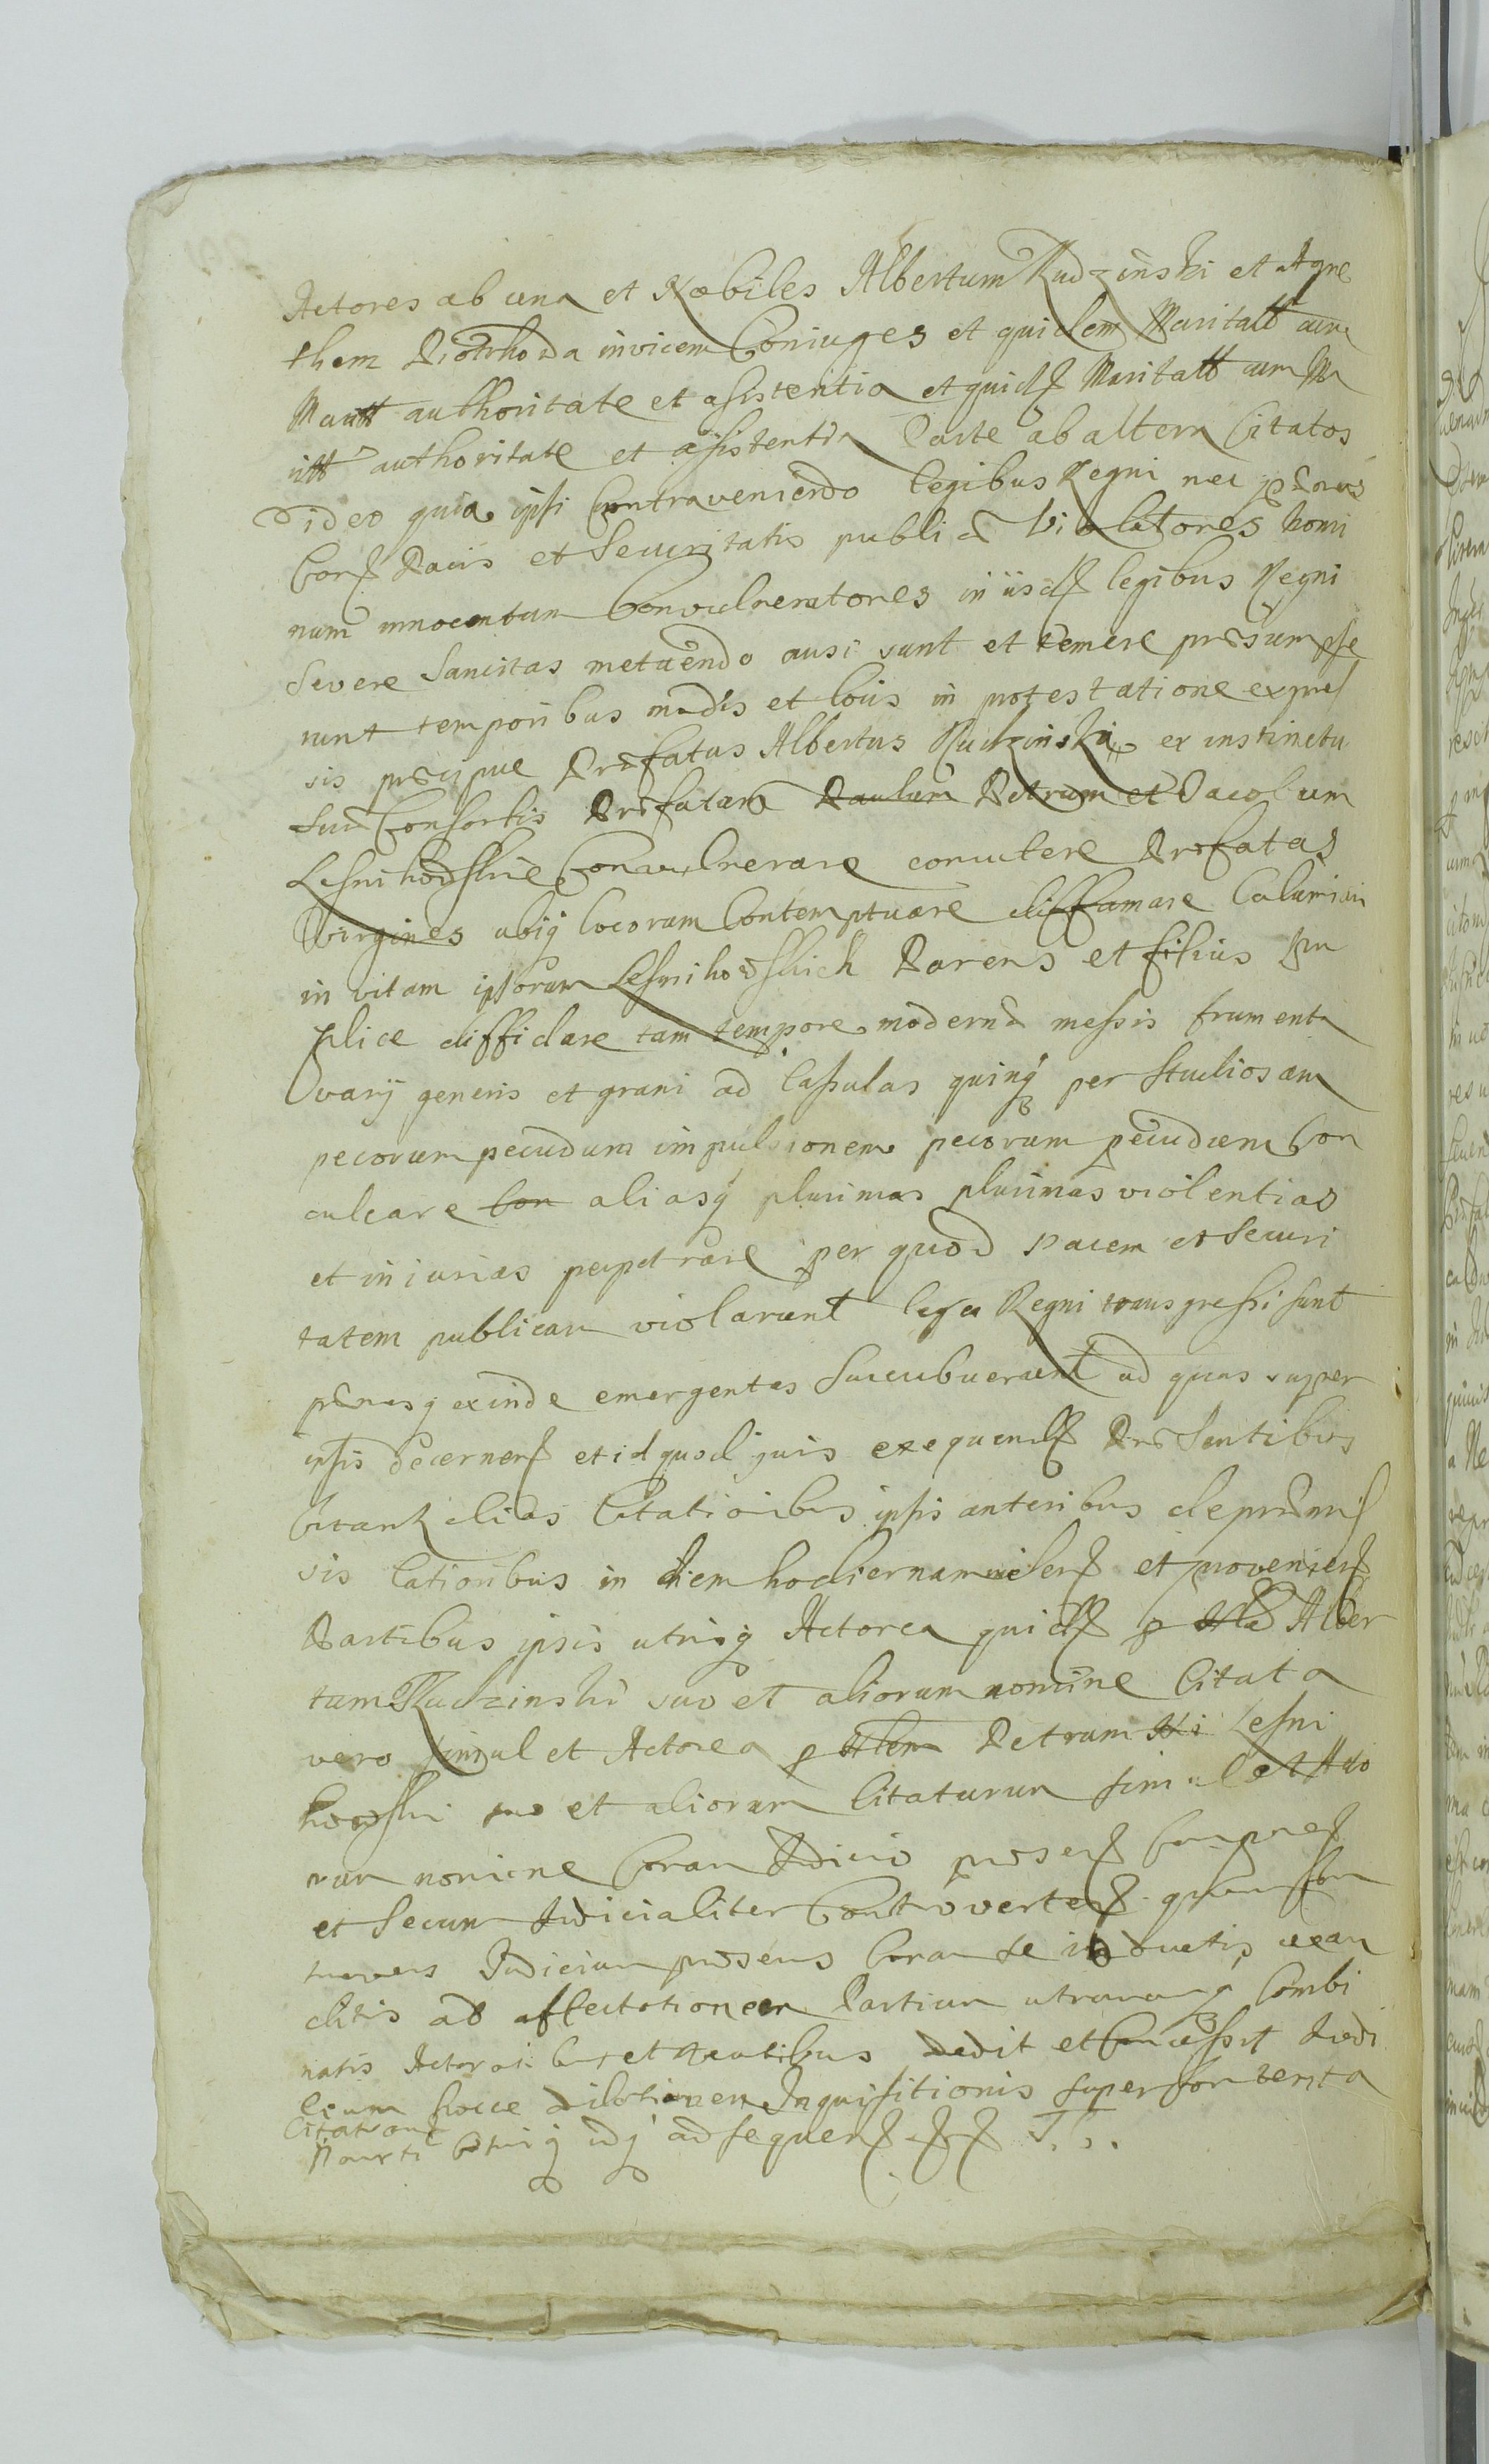 Actores ab una et Nobiles Albertum Rudzinski et Agne
them Piotrkowa invicem Coniuges et quidem Maritatt cum
Maritt authoritate et assistentia et quid Maritatt cum M
ritt authoritate et assistentia Parte ab altera Citatos
Ideo quia ipsi Contraveniendo legibus Regni nec pænas
Pacis et Securitatis publicæ Violatores homi
num innocentum Convulneratores in iisd legibus Regni
severe Sancitas metuendo ausi sunt et temere præsumpse
runt temporibus modis et locis in protestatione expres
sis præcipue Præfatus Albertus Rudzinski ex instinctu
suæ Consortis Præfatam Paulum Petrum et Jacobum
Lesnihorskie Convulnerare concutere Præfatas
Virgines ubiq locorum Contemptuare diffamare Calumniari
in vitam ipsorum Lesnihorskich Parens et filius
plice diffidare tam tempore modernæ messis frumenta
varij generis et grani ad Cassulas quinq per studiosam
pecorum pecudum impulsionem pecorum pecudum Con
culcare Con aliasq plurimas plurimas violentias
et iniurias perpetrare per quod pacem et Securi
tatem publicam violarunt leges Regni transgressi sunt
pænasq exinde emergentes Succubuerunt ad quas super
ipsis decernen et id quod juris exequend Præsentibus
Citant alias Citationibus ipsis anteribus de præmis
sis lationibus in diem hodiernam et provenien
Partibus ipsis utrisq Actorea quid p Alber
tum Rudzinski suo et aliorum nomine Citata
vero simul et Actorea p Petrum Lesni
horski suo et aliorum Citatorum simul et Acto
rum nomine Coram Judicio præsen Compren
et Secum Judicialiter Controverten
Judicium præsens Coram se inductis exau
ditis ad affectationem Partium utrarumq Combi
natis Actorat dedit et Concessit Judi
cium hocce dilationem Inquisitionis super Contenta
Citationis
Parti utriq adsequen